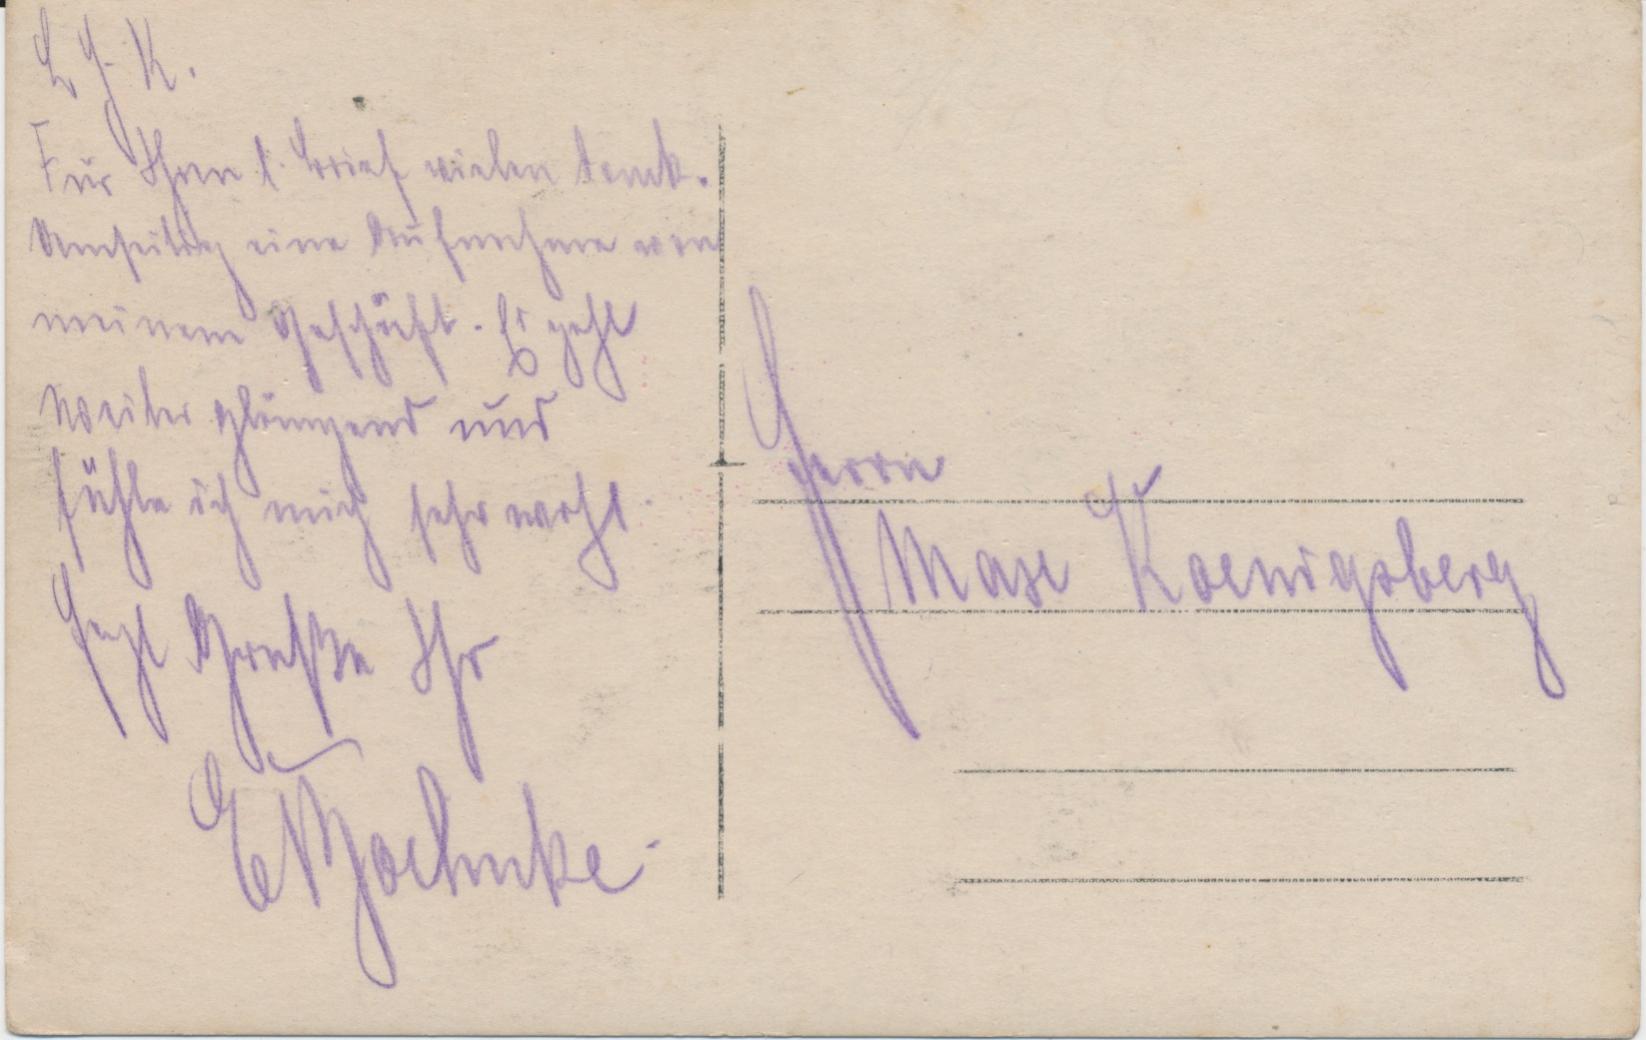 L. H. K.
Für Ihren l. Brief vielen Dank.
Umseitig eine Aufnahme von
meinem Geschäft. Es geht
weiter glänzend und
fühle ich mich sehr wohl.
Herzl Grüße Ihr
Herrn
Max Koenigsberg